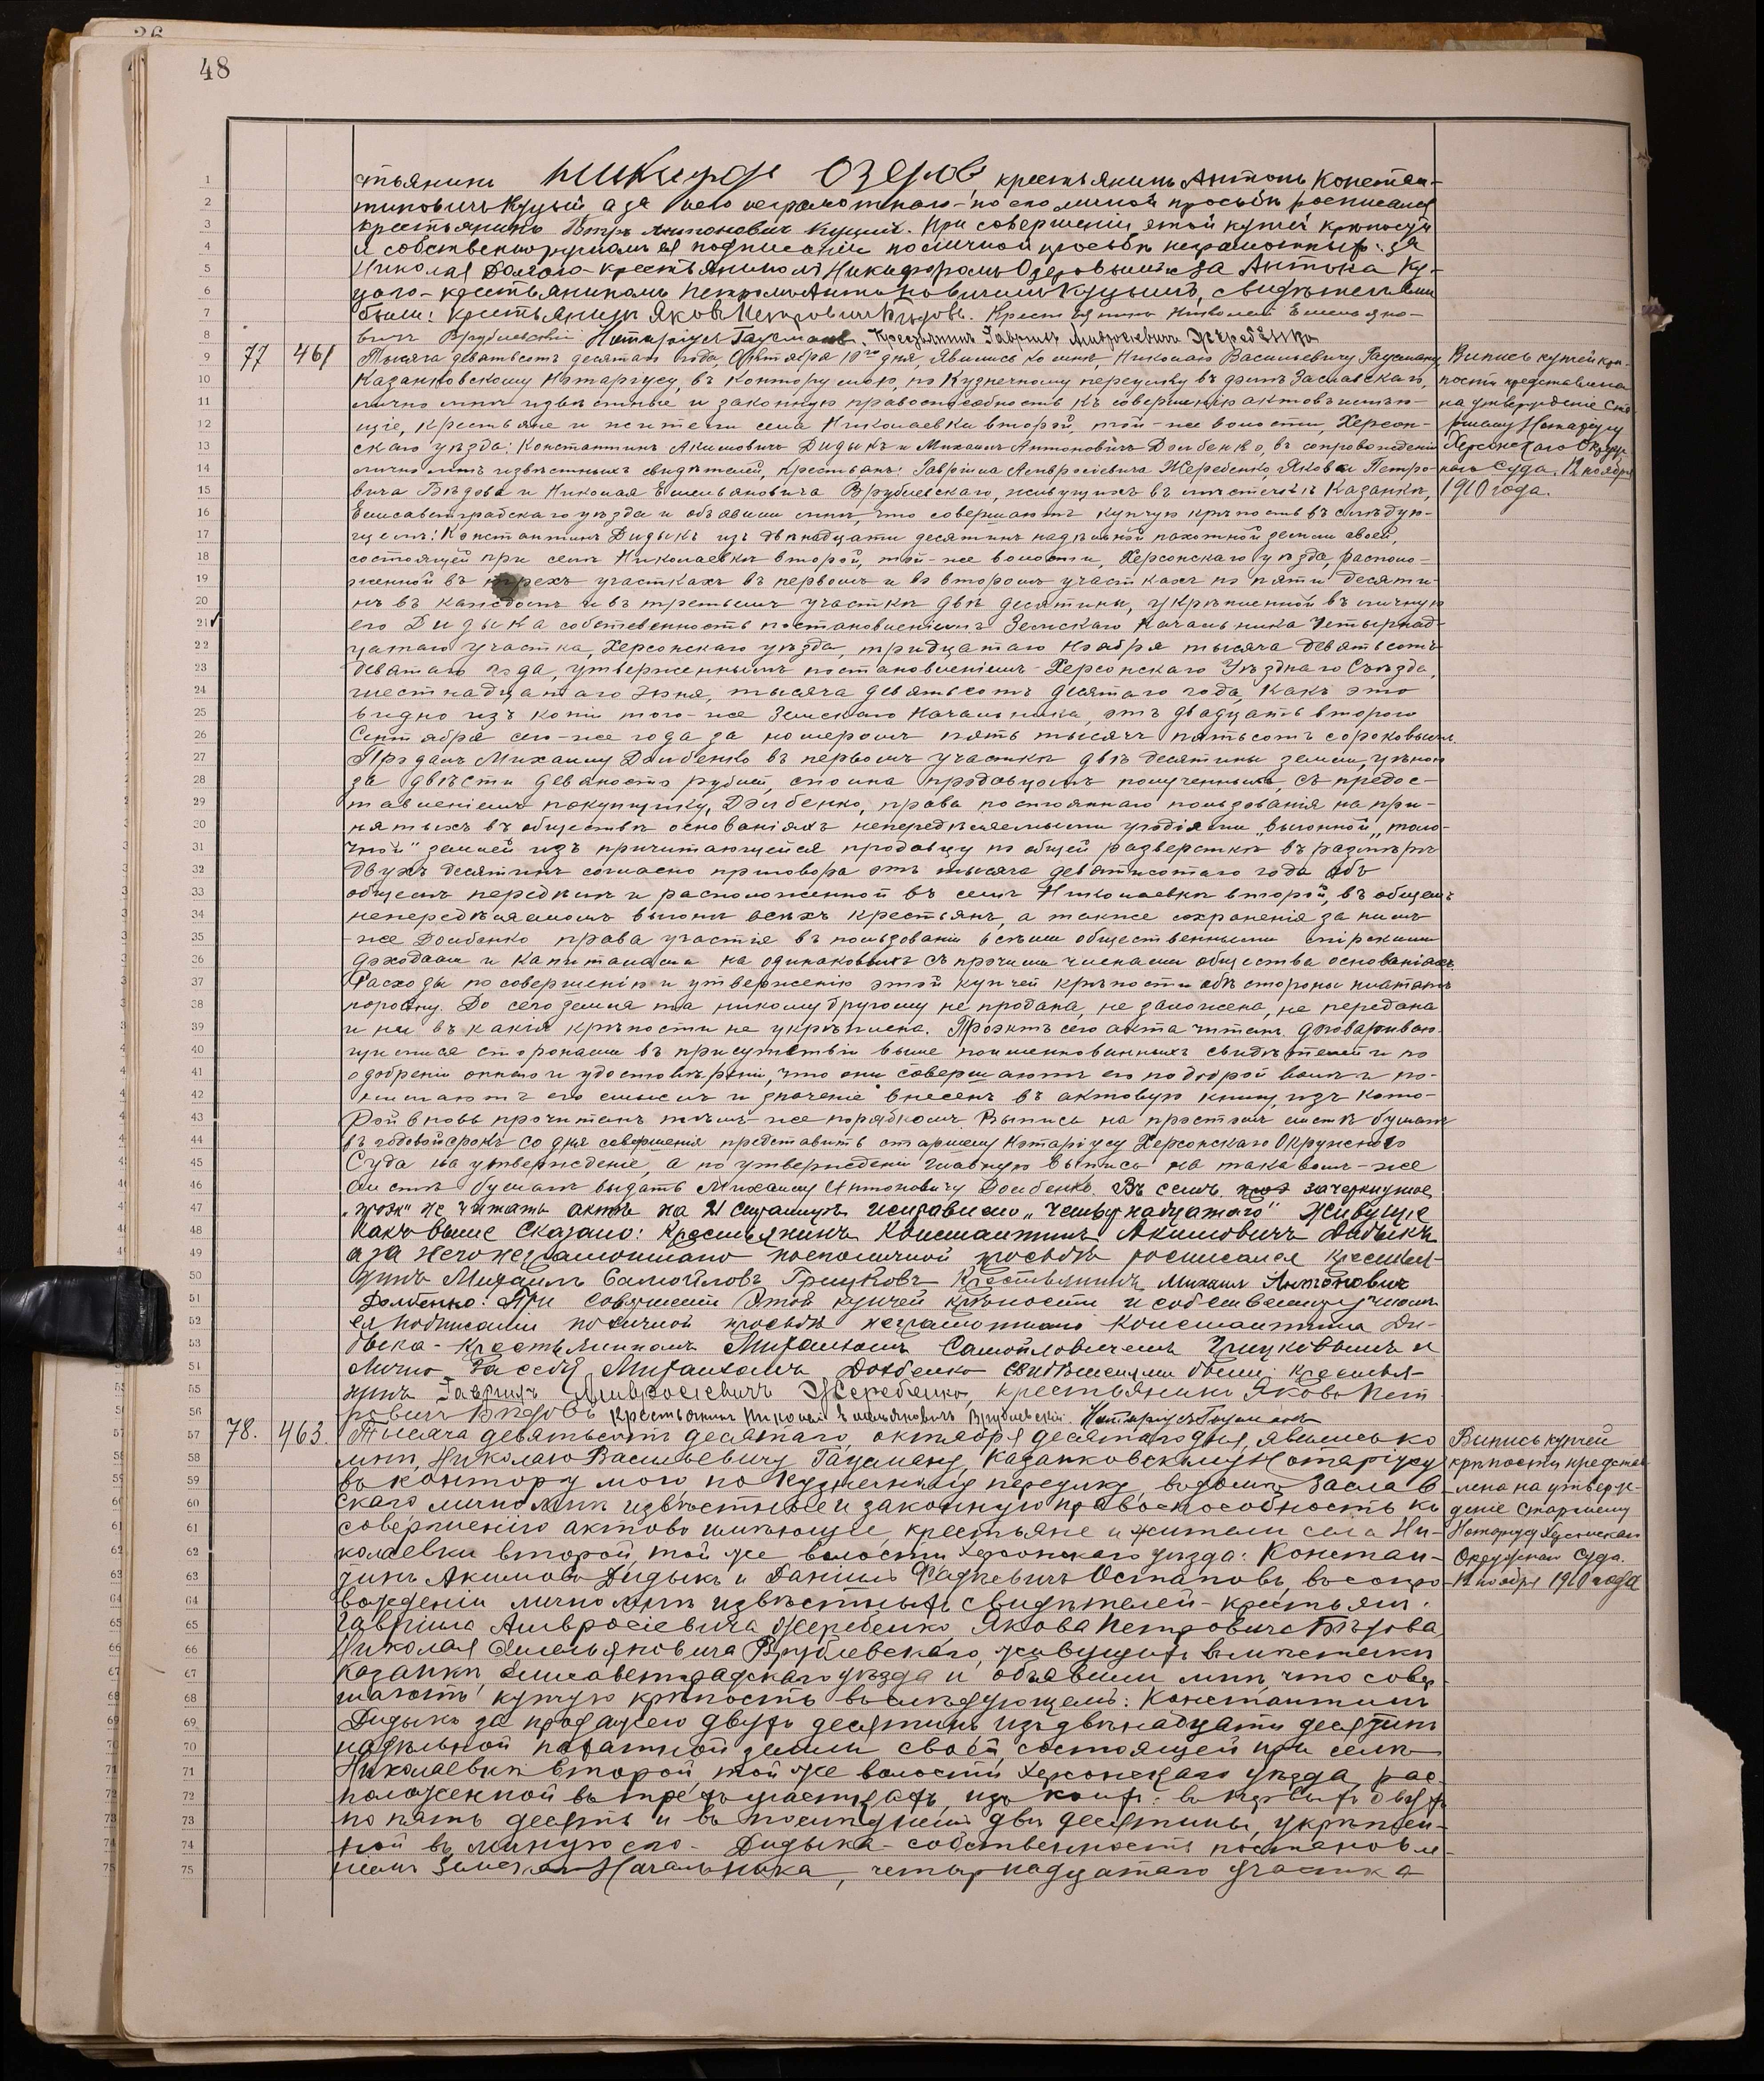 48
стьянинъ Никифоръ Озеровъ, крестьянинъ Антонъ Констан-
тиновичъ Куцый а за него неграмотнаго по его личной просьбѣ росписался
крестьянинъ Петръ Антоновичъ Куцый. При совершеніи этой купчей крѣпости
и собственноручномъ ея подписаніи по личной просьбѣ неграмотныхъ: за
Николая Долгаго - крестьяниномъ Никифоромъ Озеровымъ и за Антона Ку-
цаго - крестьяниномъ Петромъ Антоновичемъ Куцымъ, свидѣтелями
были: крестьянинъ Яковъ Петровичъ Бѣдовъ. Крестьянинъ Николай Емельяно-
вичъ Врублевскій Нотаріусъ Гаусманъ. Крестьянинъ Гавріилъ Амвросіевичъ Жеребенко
77 461 Тысяча девятьсотъ десятаго года, Октября 10го дня, явились ко мнѣ, Николаю Васильевичу Гаусману,
Казанковскому Нотаріусу, въ контору мою, по Кузнечному переулку въ домѣ Заславскаго,
лично мнѣ извѣстные и законную правоспособность къ совершенію актовъ имѣю-
щіе, крестьяне и жители села Николаевки второй, той-же волости, Херсон-
скаго уѣзда: Константинъ Акимовичъ Дидыкъ и Михаилъ Антоновичъ Долбенко, въ сопровожденіи
лично мнѣ извѣстныхъ свидѣтелей, крестьянъ: Гавріила Амвросіевича Жеребенко, Якова Петро-
вича Бѣдова и Николая Емельяновича Врублевскаго, живущихъ въ мѣстечкѣ Казанкѣ,
Елисаветградскаго уѣзда и объявили мнѣ, что совершаютъ купчую крѣпость въ слѣдую-
щемъ: Константинъ Дидыкъ изъ двѣнадцати десятинъ надѣльной пахотной земли своей,
состоящей при селѣ Николаевкѣ второй, той-же волости, Херсонскаго уѣзда, располо-
женной въ трехъ участкахъ въ первомъ и во второмъ участкахъ по пяти десяти-
нъ въ каждомъ и въ третьемъ участкѣ двѣ десятины, укрѣпленной въ личную
его Дидыка собственность постановленіемъ Земскаго Начальника четырнад-
цатаго участка, Херсонскаго уѣзда, тридцатаго Ноября тысяча девятьсотъ
девятаго года, утвержденнымъ постановленіемъ Херсонскаго Уѣзднаго Съѣзда,
шестнадцатаго Іюня, тысяча девятьсотъ десятаго года, какъ это
видно изъ копіи того-же Земскаго Начальника, отъ двадцать второго
Сентября сего-же года за номеромъ пять тысячъ пятьсотъ сороковымъ.
Продалъ Михаилу Долбенко въ первомъ участкѣ двѣ десятины земли, цѣною
за двѣсти девяносто рублей, сполна продавцомъ полученныхъ, съ предос-
тавленіемъ покупщику, Долбенко, права постояннаго пользованія на при-
нятыхъ въ обществѣ основаніяхъ непередѣляемыми угодіями „выгонной„ толо-
чной" землей изъ причитающейся продавцу по общей разверсткѣ въ размѣрѣ
двухъ десятинъ согласно приговора отъ тысяча девятисотаго года объ
общемъ передѣлѣ и расположенной въ селѣ Николаевкѣ второй, въ общемъ
непередѣляемомъ выгонѣ всѣхъ крестьянъ, а также сохраненія за нимъ
-же Долбенко права участія въ пользованіи всѣми общественными мірскими
доходами и капиталами на одинаковыхъ съ прочими членами общества основаніяхъ.
Расходы по совершенію и утвержденію этой купчей крѣпости обѣ стороны платятъ
поровну. До сего земля та никому другому не продана, не заложена, не передана
и ни въ какія крѣпости не укрѣплена. Проэктъ сего акта читанъ договариваю-
щимися сторонами въ присутствіи выше поименованныхъ свидѣтелей и по
одобреніи онаго и удостовѣреніи, что они совершаютъ его по доброй волѣ и по-
нимаютъ его смыслъ и значеніе внесенъ въ актовую книгу, изъ кото-
рой вновь прочитанъ тѣмъ-же порядкомъ Выпись на простомъ листѣ бумаги
въ годовой срокъ со дня совершенія представить старшему Нотаріусу Херсонскаго Окружнаго
Суда на утвержденіе, а по утвержденіи главную выпись на таковомъ-же
листѣ бумаги выдать Михаилу Антоновичу Долбенко. Въ семъ зачеркнутое
не читать актѣ на 21 страницѣ исправлено „четырнадцатаго" Живущіе
какъ выше сказано: Крестьянинъ Константинъ Акимовичъ Дидыкъ
а за него неграмотнаго по его личной просьбѣ росписался крестьян-
нинъ Михаилъ Самойловъ Грицковъ Крестьянинъ Михаил Антонович
Долбенко: При совершеніи этой купчей крѣпости и собственноручномъ
ея подписаніи по личной просьбѣ неграмотнаго Константина Ди-
дыка - Крестьяниномъ Михаиломъ Самойловичемъ Грицковымъ и
Лично За себя Михаиломъ Долбенко свидѣтелями были: Крестья-
нинъ Гавріилъ Амвросіевичъ Жеребенко, крестьянинъ Яковъ Пет
ровичъ Бѣдовъ Крестьянинъ Николай Емельяновичъ Врублевскій. Нотаріусъ Гаусманъ
78. 463. Тысяча девятьсотъ десятаго, октября десятаго дня, явились ко
мнѣ, Николаю Васильевичу Гаусману, Казанковскому Нотаріусу
въ контору мою, по Кузнечному переулку, въ домѣ Заслав-
скаго, лично мнѣ извѣстные и законную правоспособность къ
совершенію актовъ имѣющіе, крестьяне и жители села Ни-
колаевки второй, той же волости Херсонскаго уѣзда: Констан-
тинъ Акимовъ Дидыкъ и Даніилъ Фадѣевичъ Остаповъ, въ сопро-
вожденіи лично мнѣ извѣстныхъ свидѣтелей - крестьян:
Гавріила Амвросіевича Жеребенко, Якова Петровича Бѣдова,
Николая Емельяновича Врублевскаго, живущихъ въ мѣстечкѣ
Казанкѣ, Елисаветградскаго уѣзда и объявили мнѣ, что совер-
шаютъ купчую крѣпость въ слѣдующемъ: Константинъ
Дидыкъ за продажею двухъ десятинъ изъ двѣнадцати десятин
надѣльной пахатной земли своей, состоящей при селѣ
Николаевкѣ второй, той же волости Херсонскаго уѣзда, рас-
положенной въ трехъ участкахъ, изъ коихъ: въ первыхъ двухъ
по пять десятъ и въ послѣднемъ двѣ десятины, укрѣплен-
ной въ личную его - Дидыка - собственность постановле-
ніемъ Земскаго Начальника, четырнадцатаго участка
Выпись купчей крѣ-
пости представлена
на утвержденіе Ста-
ршему Нотаріусу
Херсонскаго Окруж-
наго Суда. 12 ноября
1910 года.
Выпись купчей
крѣпости представ-
лена на утверж-
деніе Старшему
Нотаріусу Херсонскаго
Окружнаго Суда.
12 ноября 1910 года